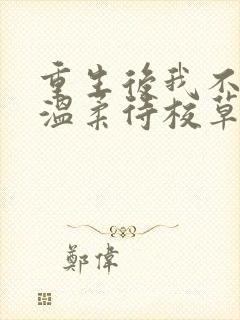 重生後我不
溫柔待校草
鄭偉